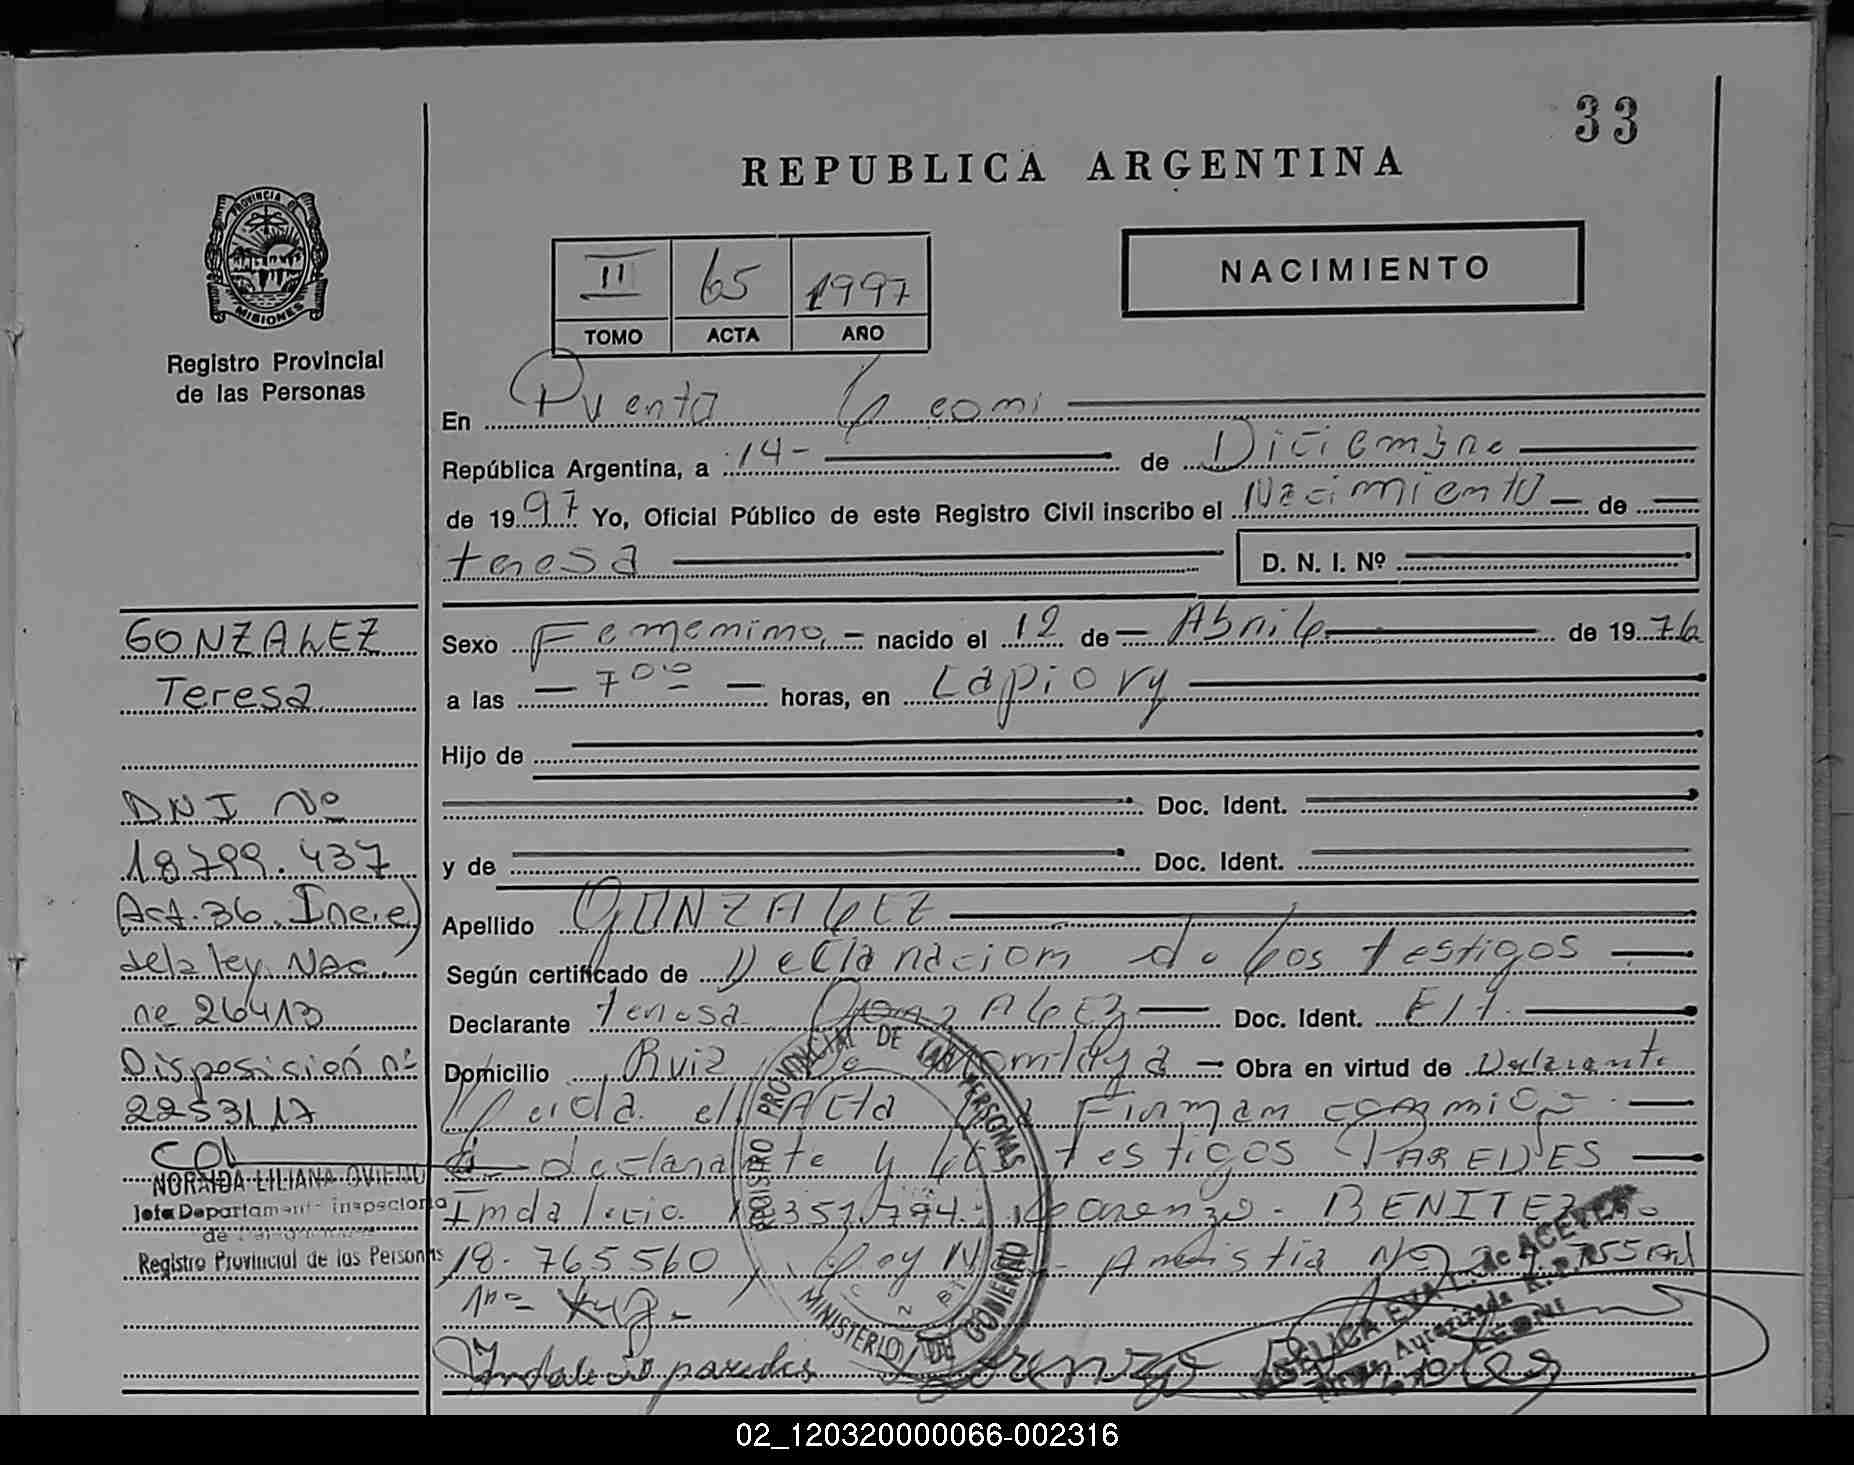 33
REPUBLICA ARGENTINA
PROVINCIA DE
MISIONES
Registro Provincial
de las Personas
NACIMIENTO
III 65 1997
TOMO ACTA AÑO
En Puento Leoni
República Argentina, a 14- de Diciembre
de 1997 Yo, Oficial Público de este Registro Civil inscribo el Nacimiento de
teresa D. N. I. Nº
Sexo Femenino nacido el 12 de Abril de 1976
a las 7 00 horas, en Capiovy
Hijo de
Doc. Ident.
y de Doc. Ident.
Apellido GONZALEZ
Según certificado de Declaracion de los testigos
Declarante teresa GonzALEZ Doc. Ident. E/t.
Domicilio Ruiz de Montoya Obra en virtud de Declarante
Leida el Acta La Firman conmigo
la declarante y los testigos PAREDES
Indalecio 351.794. Lorenzo - BENITEZ
18-765560 Ley Nº Amnistia Nº
Indalecio paredes Lorenzo
GONZALEZ
Teresa
DNI Nº
18799.437
Art.36, Inc.e)
de la ley. NAC.
nº 26413
Disposición nº
2253/17
NORAIDA LILIANA OVIEDO
Jefa Departamento Inspectoria
de
Registro Provincial de las Personas
REGISTRO PROVINCIAL DE LAS PERSONAS
MINISTERIO DE GOBIERNO
ANGELICA EVA L. de ACEVEDO
Autorizada R.P.P.
LEONI
02_120320000066-002316